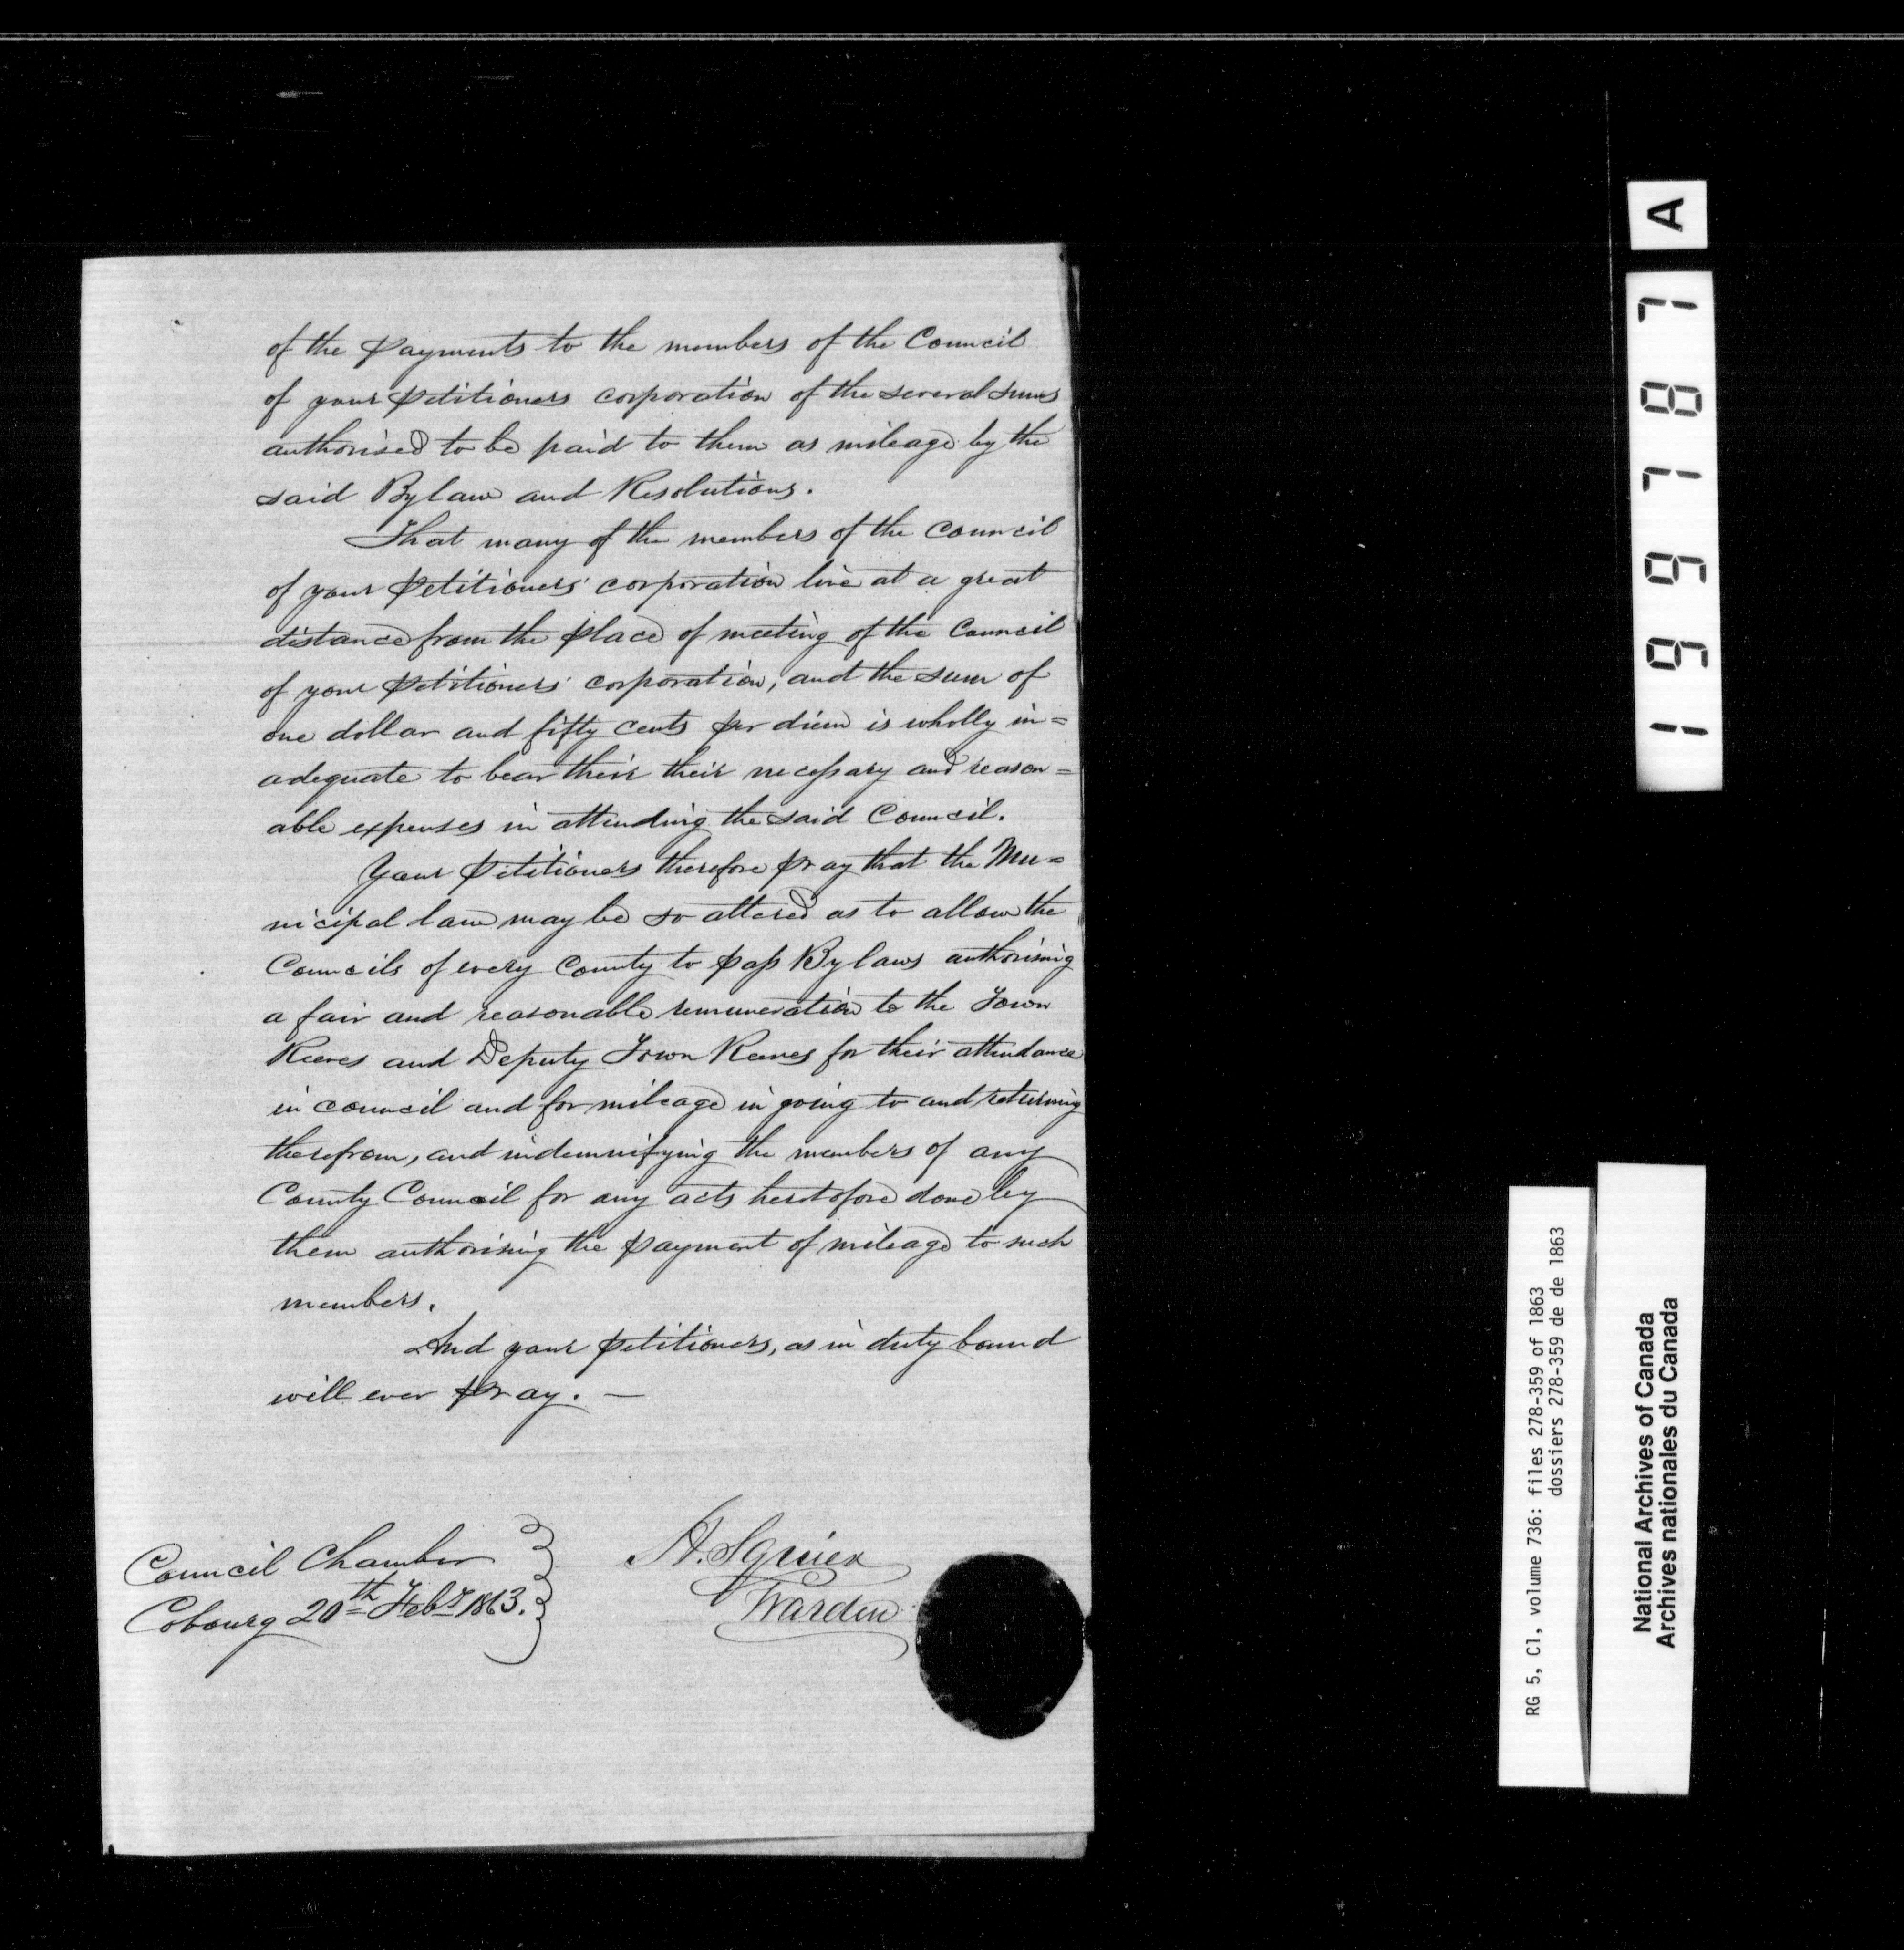 of the Payments to the members of the Council
of your Petitioners corporation of the several sums
authorised to be paid to them as mileage by the
said Bylaw and Resolutions.
That many of the members of the Council
of your Petitioners' corporation live at a great
distance from the place of meeting of the Council
of your Petitioners' corporation, and the sum of
one dollar and fifty cents per diem is wholly in=
adequate to bear their their necessary and reason=
able expenses in attending the said Council.
Your Petitioners therefore pray that the Mu=
nicipal law may be so altered as to allow the
Councils of every County to pass Bylaws authorising
a fair and reasonable remuneration to the Town
Reeves and Deputy Town Reeves for their attendance
in council and for mileage in going to and returning
therefrom, and indemnifying the members of any
County Council for any acts heretofore done by
them authorising the payment of mileage to such
members.
And your petitioners, as in duty bound
will ever pray. —
Council Chamber
Cobourg 20th Feby 1863.
A. Squier
Warden
A
199787
RG 5, C1, volume 736: files 278-359 of 1863
dossiers 278-359 de de 1863
National Archives of Canada
Archives nationales du Canada